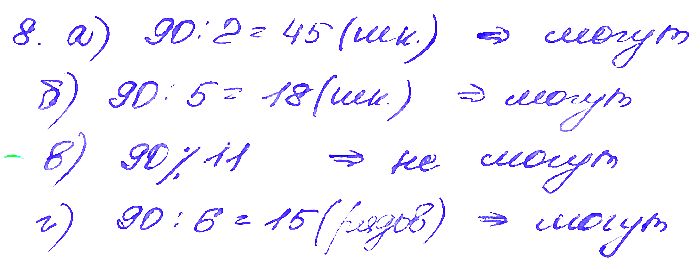 8. а) 90 : 2 = 45 (шк.) ⇒ могут
б) 90 : 5 = 18 (шк.) ⇒ могут
- в) 90 ⁒ 11 ⇒ не могут
г) 90 : 6 = 15 (рядов) ⇒ могут